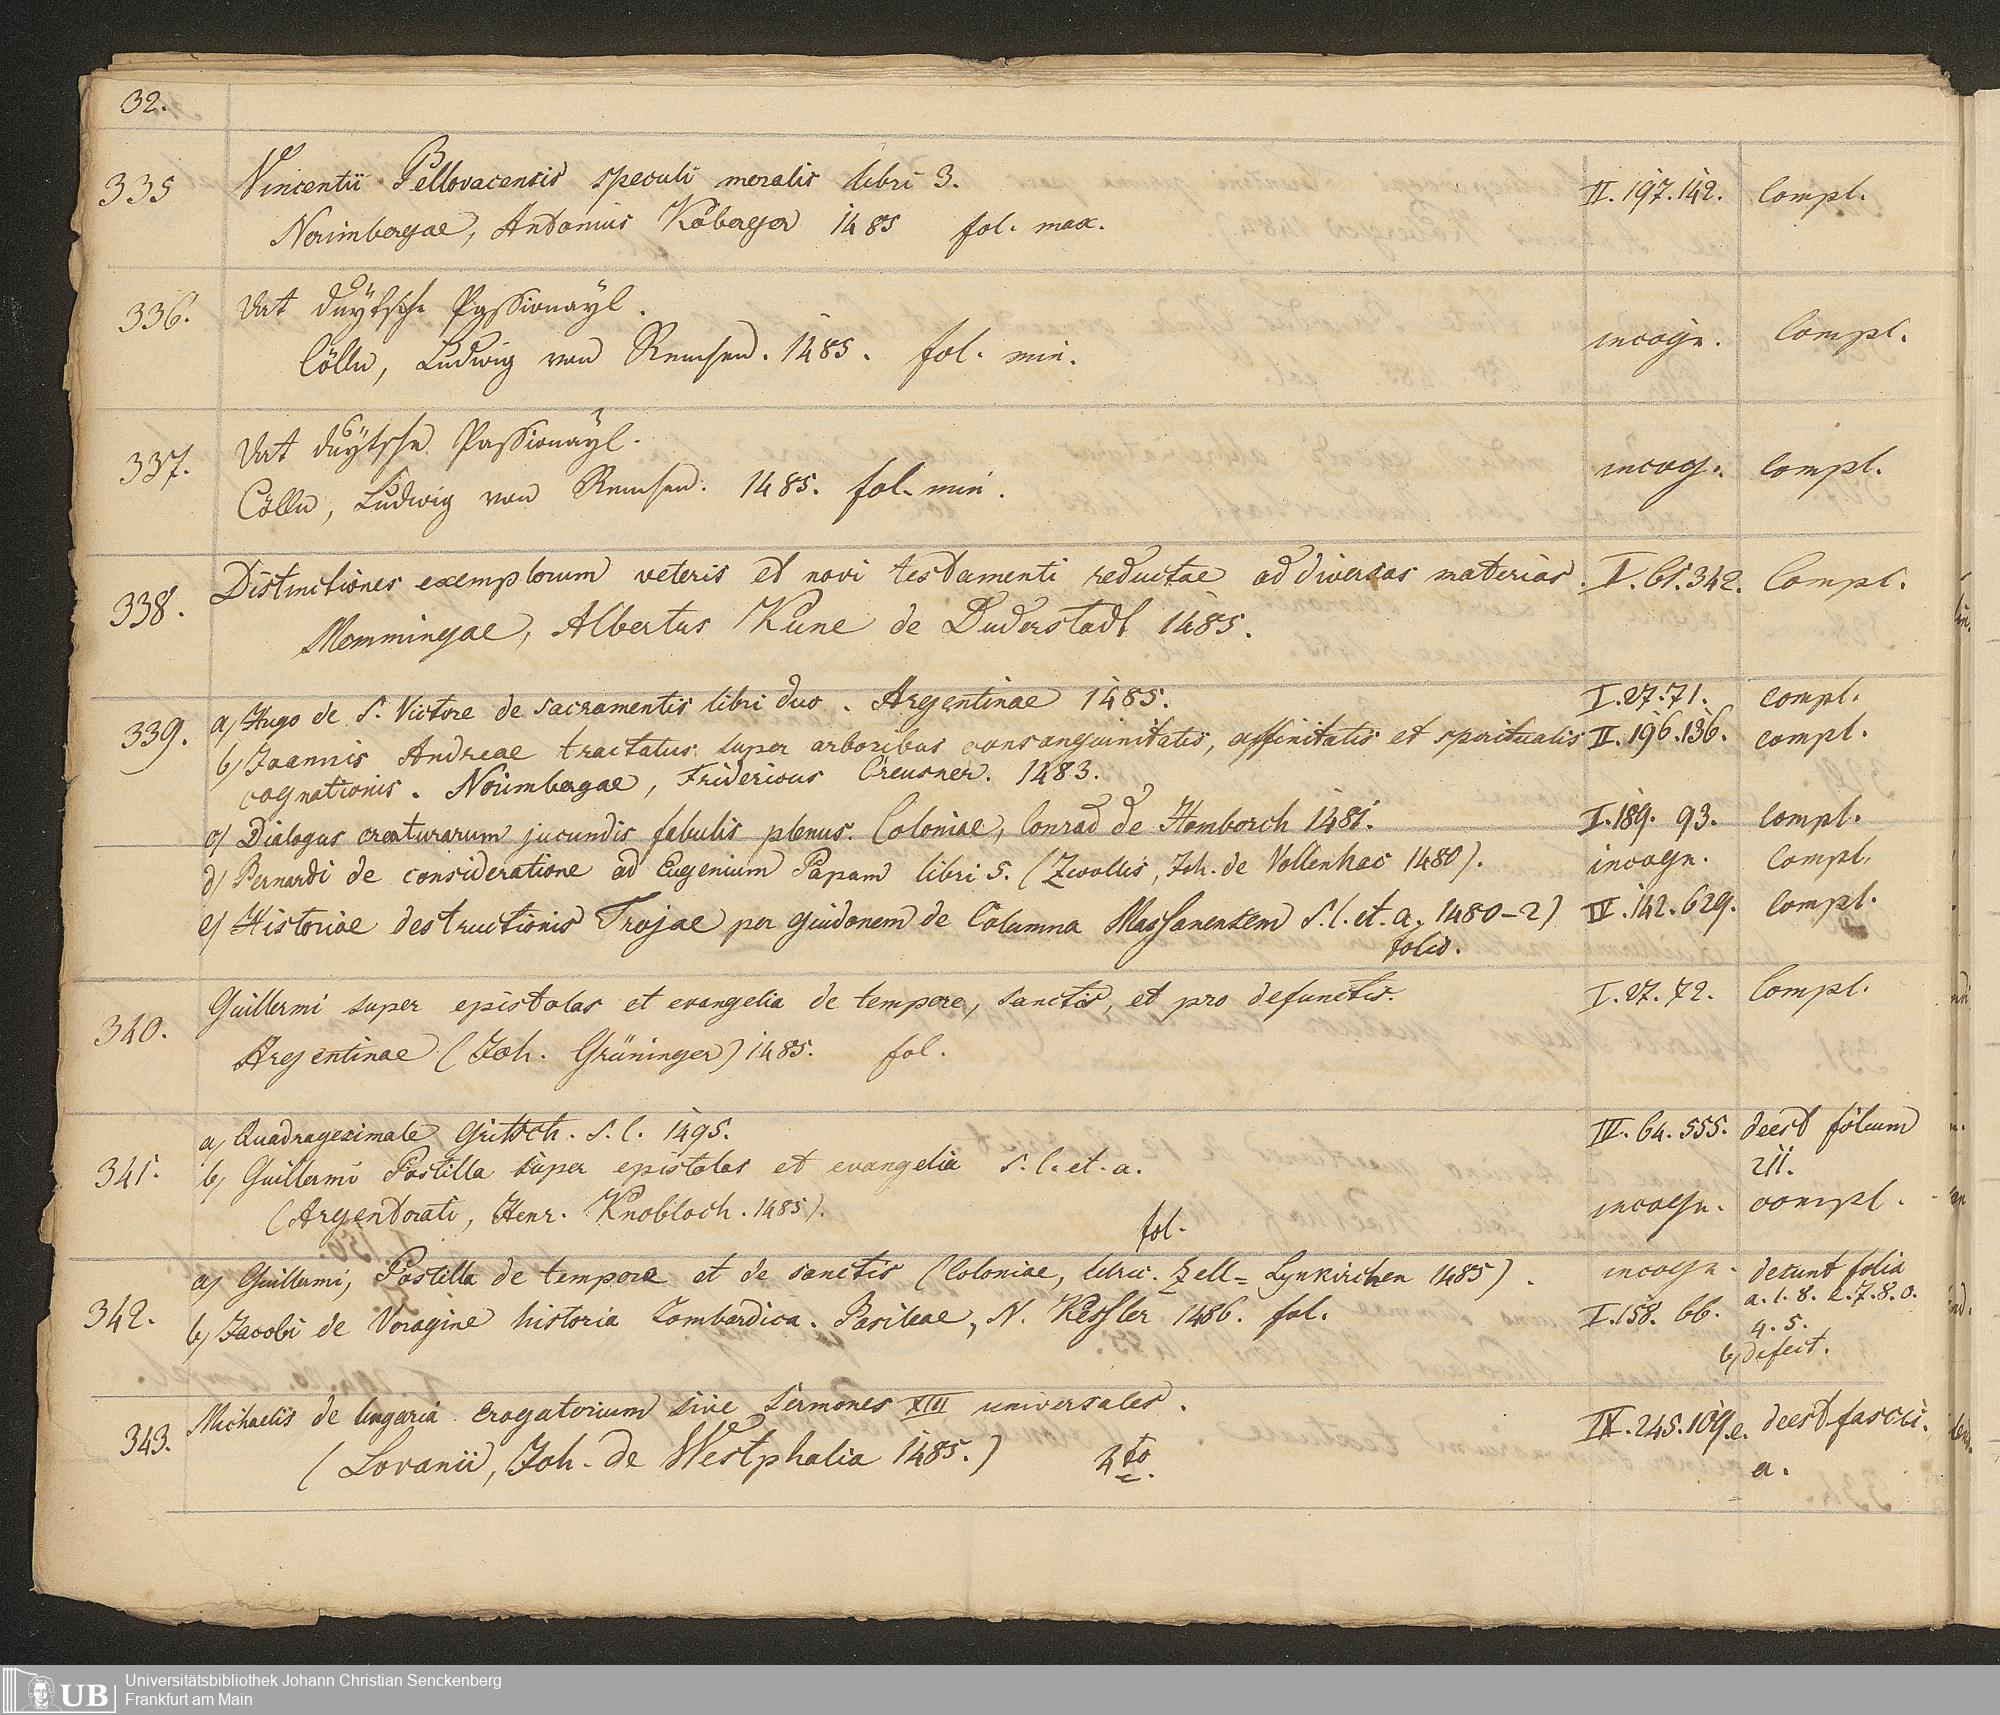 32.
335 Vincentii Bellovacensis speculi moralis libri 3. II. 197. 142. Compl.
Norimbergae, Antonius Koberger 1485 fol. max.
336. Dat duÿtsche Passionaÿl.
Cölln, Ludwig von Renchen. 1485. fol. min. incogn. Compl.
337. Dat duÿtsche Passionaÿl.
Cölln, Ludwig von Renchen. 1485. fol. min. incogn. Compl.
338. Distinctiones exemplorum veteris et novi testamenti reductae ad diversas materias. I. 61. 342. Compl.
Memmingae, Albertus Kune de Duderstadt 1485.
339. a) Hugo de S. Victore de sacramentis libri duo. Argentinae 1485. I. 27. 71. compl.
b) Joannis Andreae tractatus super arboribus consanguinitatis, affinitatis et spiritualis II. 196. 136. compl.
cognationis. Norimbergae, Fridericus Creusner. 1483.
c) Dialogus creaturarum jucundis fabulis plenus. Coloniae, Conrad de Homborch 1481. I. 189. 93. Compl.
d) Bernardi de consideratione ad Eugenium Papam libri 5. (Zwollis, Joh. de Vollenhoe 1480). incogn. Compl.
e) Historiae destructionis Trojae per Guidonem de Columna Massanensem S. l. et. a. 1480-2) IV. 142. 629. Compl.
folio.
340. Guillermi super epistolas et evangelia de tempore, sanctis, et pro defunctis. I. 27. 72. Compl.
Argentinae (Joh. Grüninger) 1485. fol.
341. a) Quadragesimale Gritsch. S. l. 1495. IV. 64. 555. deest folium
211.
b) Guillermi Postilla super epistolas et evangelia S. l. et. a.
(Argentorati, Henr. Knobloch. 1485). fol. incogn. compl.
342. a) Guillermi, Postilla de tempore et de sanctis (Coloniae, Ulric. Zell= Lynkirchen 1485). incogn. desunt folia
a. 1. 8. 2. 7. 8. o.
4. 5.
b) Jacobi de Voragine historia Lombardica. Basileae, N. Kessler 1486. fol. I. 158. 66.
b) defect.
343. Michaelis de Ungaria Erogatorium sive Sermones XIII universales. IX. 245. 109.e. deest fasci.
a.
(Lovanii, Joh. de Westphalia 1485.) 4to
UB Universitätsbibliothek Johann Christian Senckenberg
Frankfurt am Main